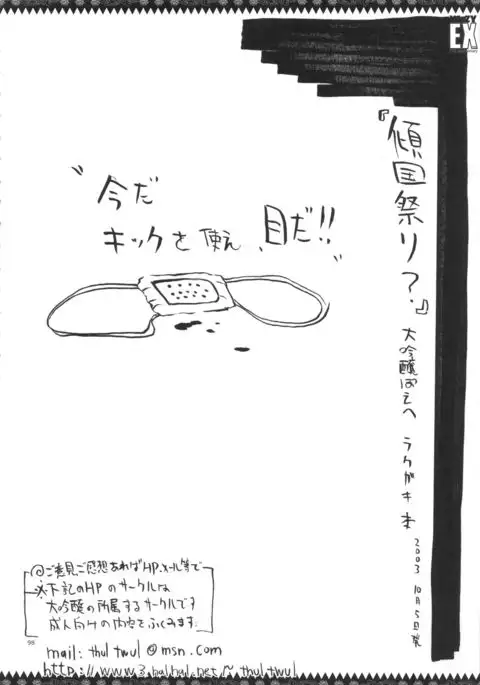 EX
『傾国祭り?』
大吟醸ぽえへ ラクガキ本
2003 10月5日発
"今だ
キックを使え、目だ!!"
◎ご意見、ご感想あればHP、メール等で
※下記のHPのサークルは
大吟醸の所属するサークルです
成人向けの内容をふくみます。
98
mail: thul twul @ msn. com